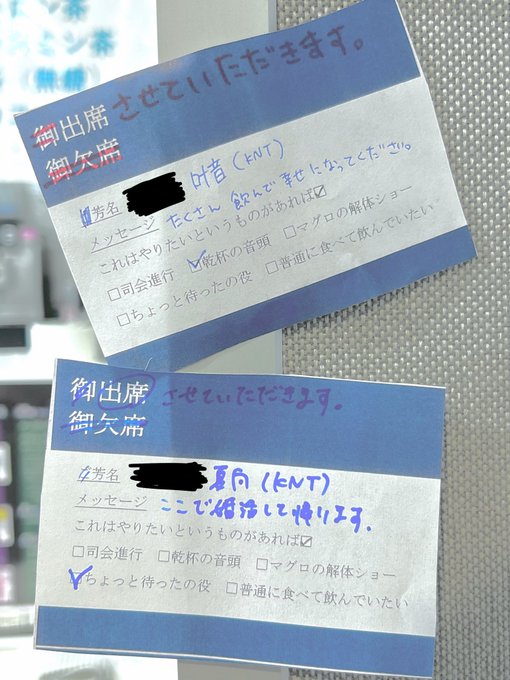 御出席させていただきます。
御欠席
御芳名 叶音 (KNT)
メッセージ たくさん 飲んで 幸せになってください。
これはやりたいというものがあれば☑
□司会進行 ☑乾杯の音頭 □マグロの解体ショー
□ちょっと待ったの役 □普通に食べて飲んでいたい
御出席 させていただきます。
御欠席
御芳名 夏向 (KNT)
メッセージ ここで婚活して帰ります.
これはやりたいというものがあれば☑
□司会進行 □乾杯の音頭 □マグロの解体ショー
☑ちょっと待ったの役 □普通に食べて飲んでいたい